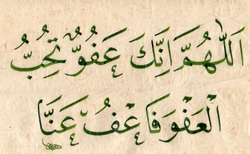 اَللّٰهُمَّ اِنَّكَ عَفُوٌّ تُحِبُّ
الْعَفْوَ فَاعْفُ عَنَّا